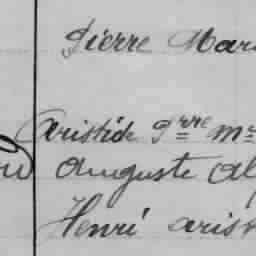 Pierre Mar
Aristide Pre Mie
Auguste Al
Henri Arist